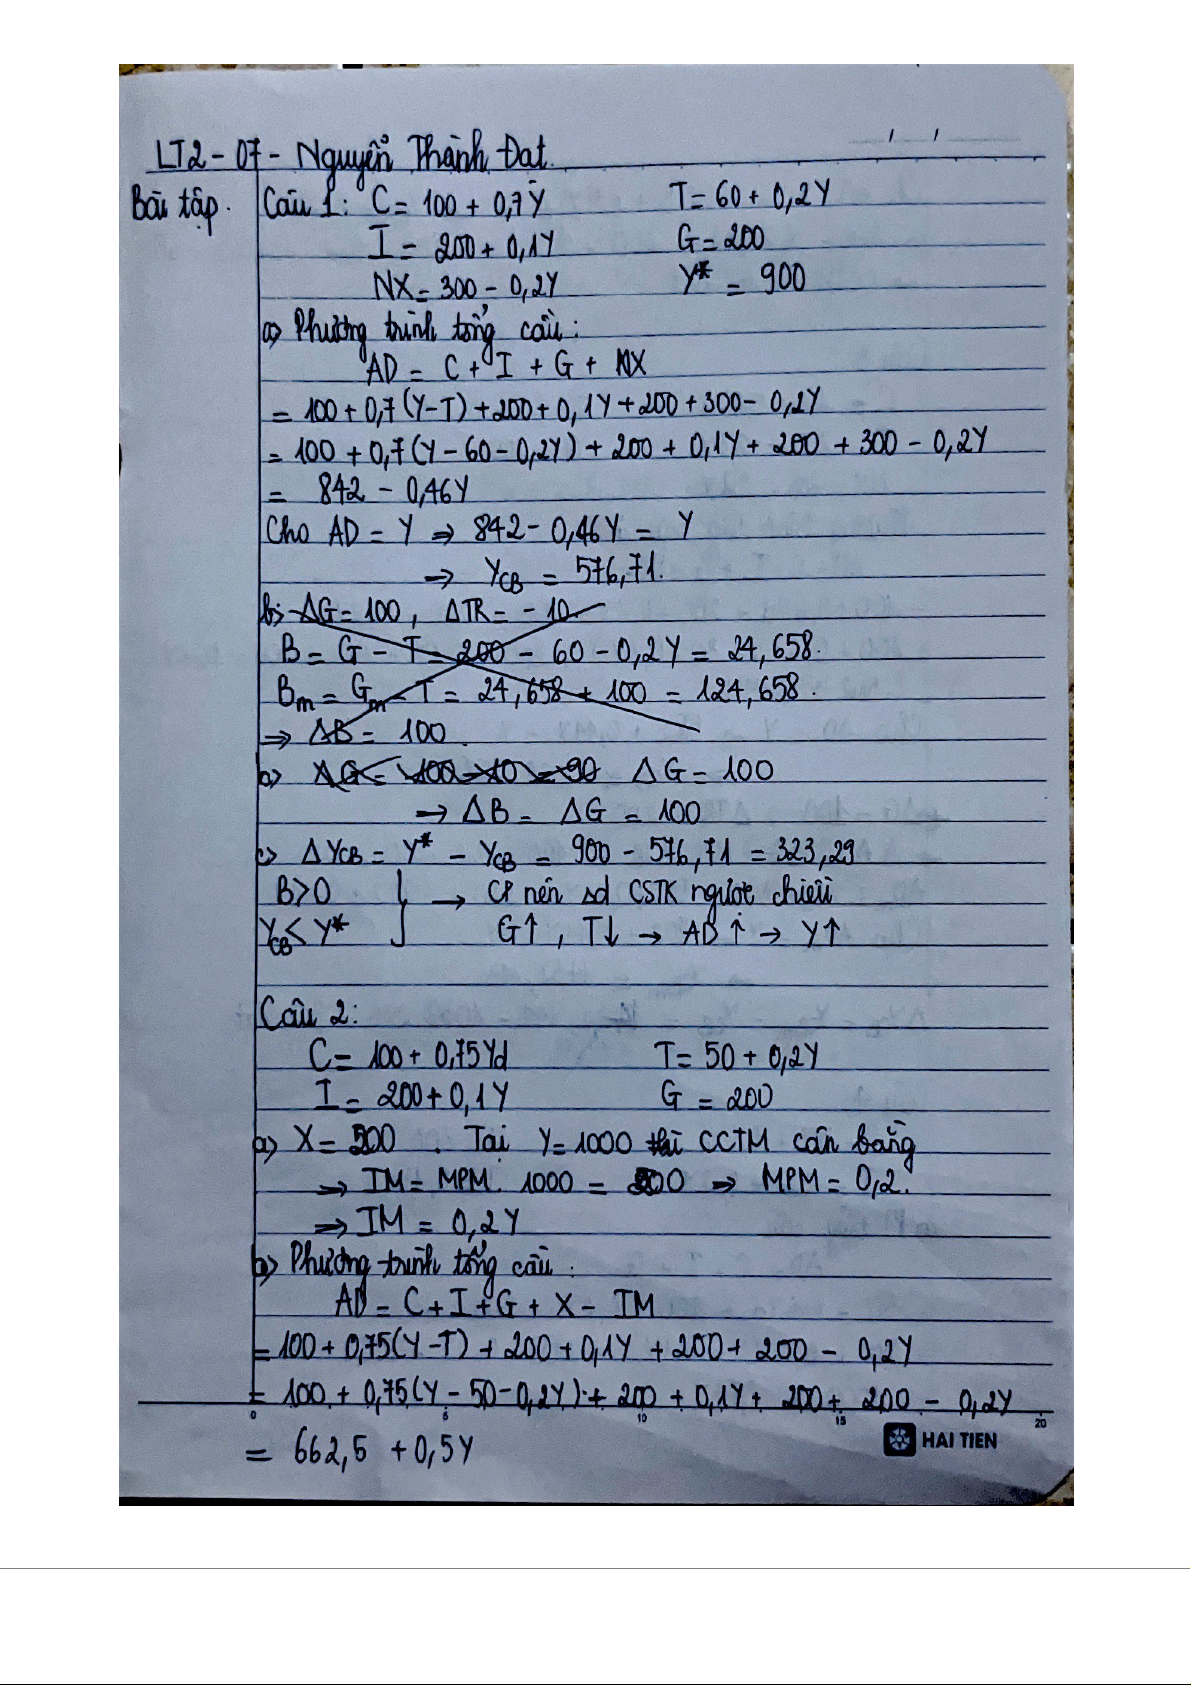 LT2 - 07 - Nguyễn Thành Đạt
Bài tập. Câu 1: C = 100 + 0,7Y T = 60 + 0,2Y
I = 200 + 0,1Y G = 200
NX = 300 - 0,2Y Y* = 900
a) Phương trình tổng cầu:
AD = C + I + G + NX
= 100 + 0,7(Y-T) + 200 + 0,1Y + 200 + 300 - 0,2Y
= 100 + 0,7(Y - 60 - 0,2Y) + 200 + 0,1Y + 200 + 300 - 0,2Y
= 842 - 0,46Y
Cho AD = Y ⇒ 842 - 0,46Y = Y
⇒ Y_CB = 576,71.
b) ΔG = 100, ΔTR = -10
B = G - T = 200 - 60 - 0,2Y = 24,658.
B_m = G_m - T = 24,658 + 100 = 124,658.
⇒ ΔB = 100.
b) ΔG = 100 - 10 = 90 ΔG = 100
→ ΔB = ΔG = 100
c) ΔY_CB = Y* - Y_CB = 900 - 576,71 = 323,29
B > 0 } → CP nên sd CSTK ngược chiều
Y_CB < Y* G↑, T↓ → AD↑ → Y↑
Câu 2:
C = 100 + 0,75Yd T = 50 + 0,2Y
I = 200 + 0,1Y G = 200
a) X = 200. Tại Y = 1000 thì CCTM cân bằng
⇒ IM = MPM. 1000 = 200 ⇒ MPM = 0,2.
⇒ IM = 0,2Y
b) Phương trình tổng cầu:
AD = C + I + G + X - IM
= 100 + 0,75(Y-T) + 200 + 0,1Y + 200 + 200 - 0,2Y
= 100 + 0,75(Y - 50 - 0,2Y) + 200 + 0,1Y + 200 + 200 - 0,2Y
0 5 10 15 20
= 662,5 + 0,5Y
HAI TIEN